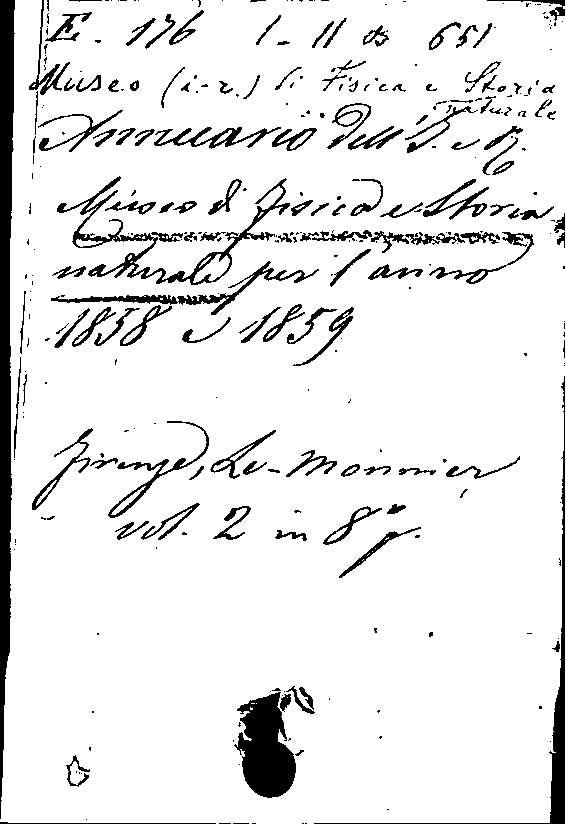 E. 176 I-II B 651
Museo (i-r.) di Fisica e Storia
naturale
Annuario dell' I. e R.
Museo di Fisica e Storia
naturale per l'anno
1858 e 1859
Firenze, Le-Monnier
vol. 2 in 8° p.